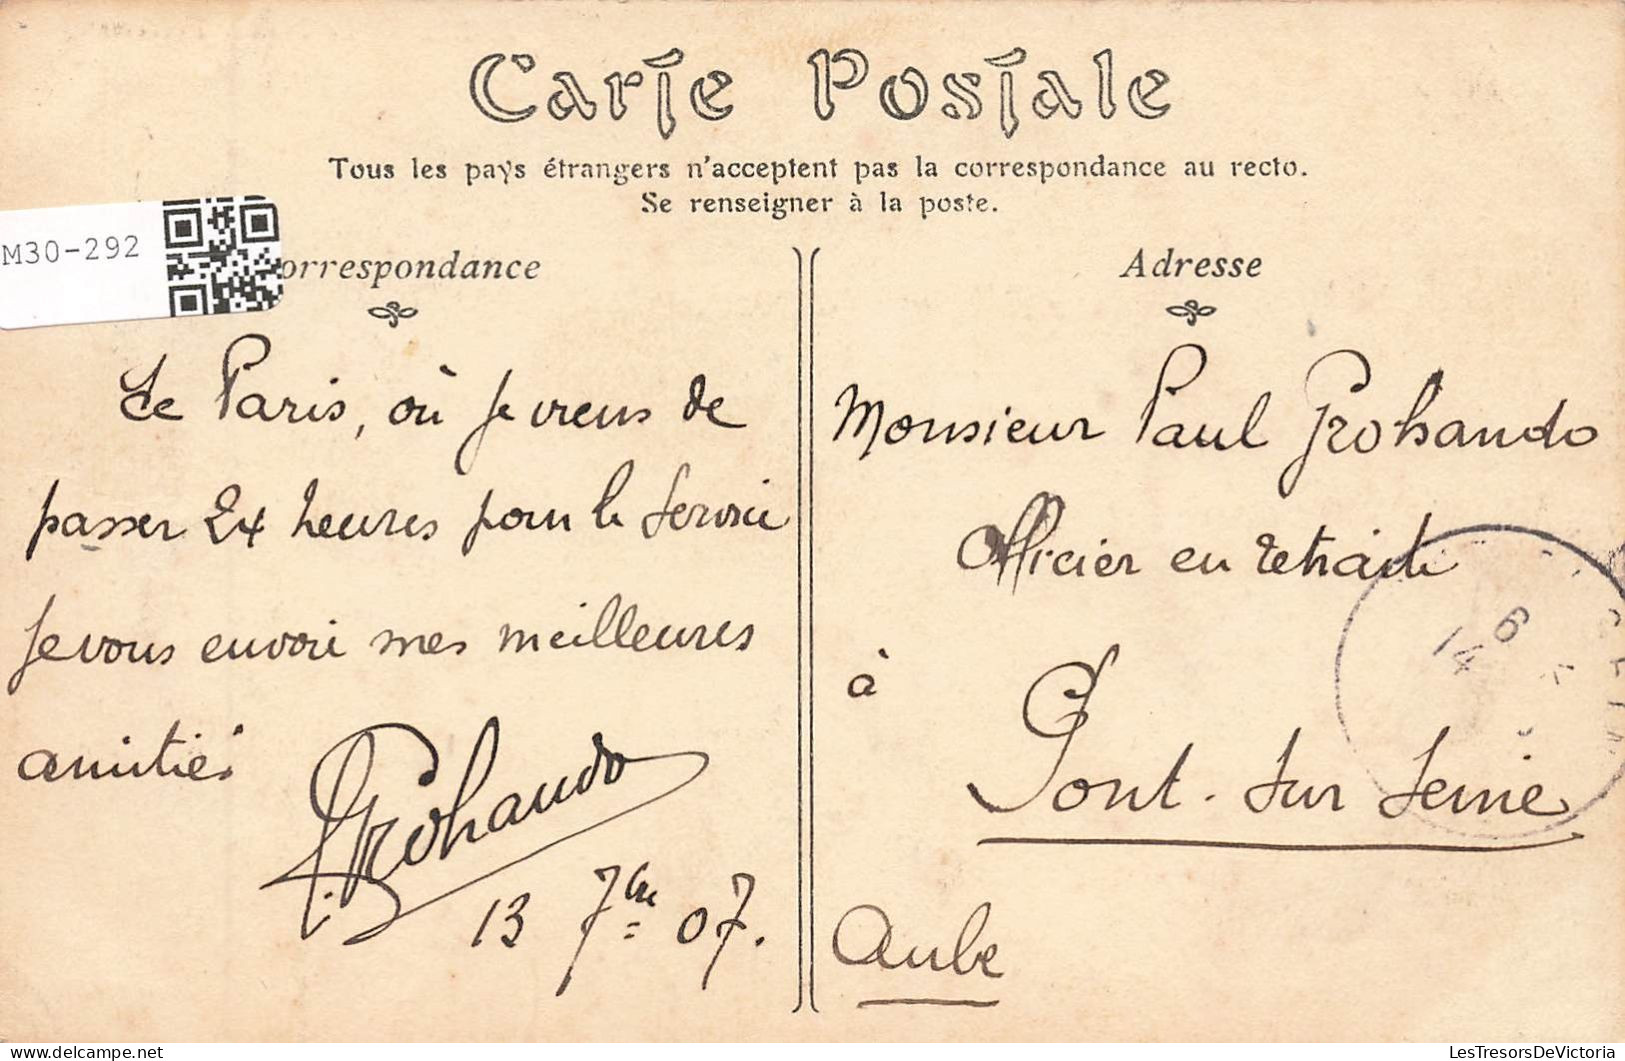 Carte Postale
Tous les pays étrangers n'acceptent pas la correspondance au recto.
Se renseigner à la poste.
M30-292
orrespondance
De Paris, où je viens de
passer 24 heures pour le service
je vous envoie mes meilleures
amitiés
Prohando
13 7bre 07.
Adresse
Monsieur Paul Prohando
Officier en retraite
à
Pont-sur Seine
Aube
14 6
LesTresorsDeVictoria